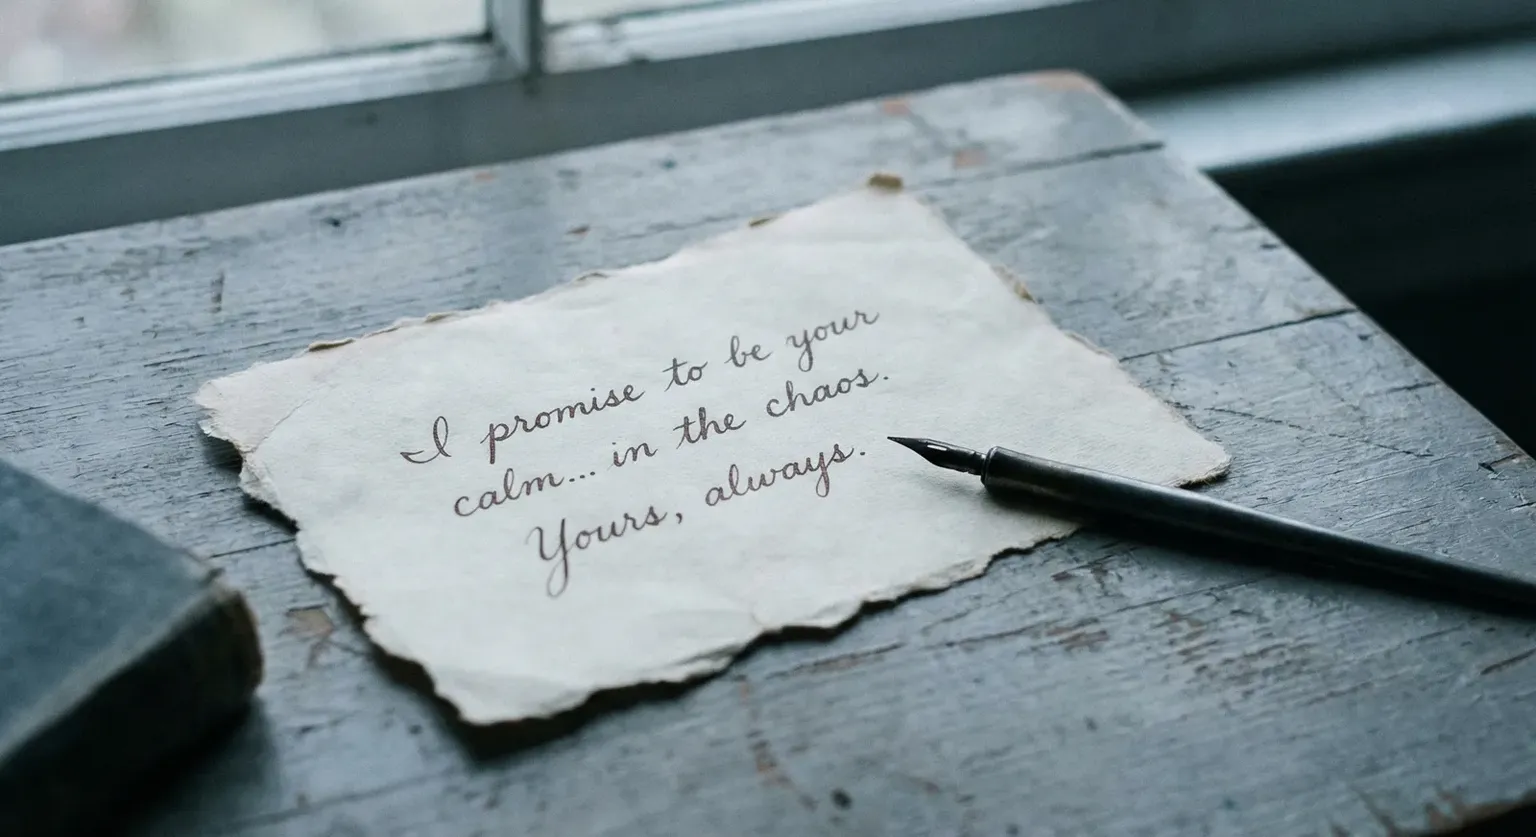 I promise to be your
calm... in the chaos.
Yours, always.